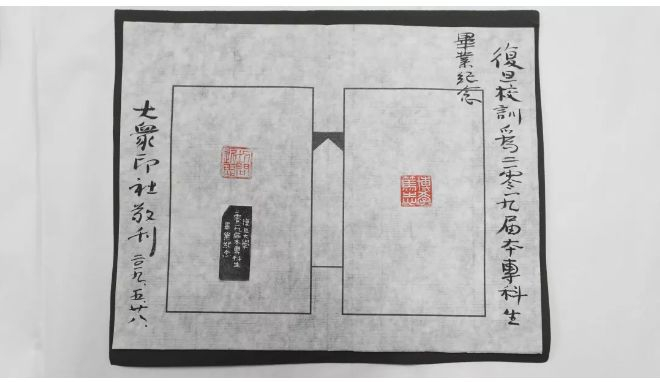 復旦校訓爲二零一九届本專科生
畢業紀念
博學
篤志
切問
近思
復旦大學
二零一九届本專科生
畢業紀念
大衆印社敬刊 二〇一九、五、廿八、